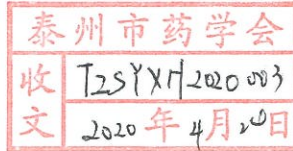 泰州市药学会
收文 TZSYXH2020003
2020年4月20日